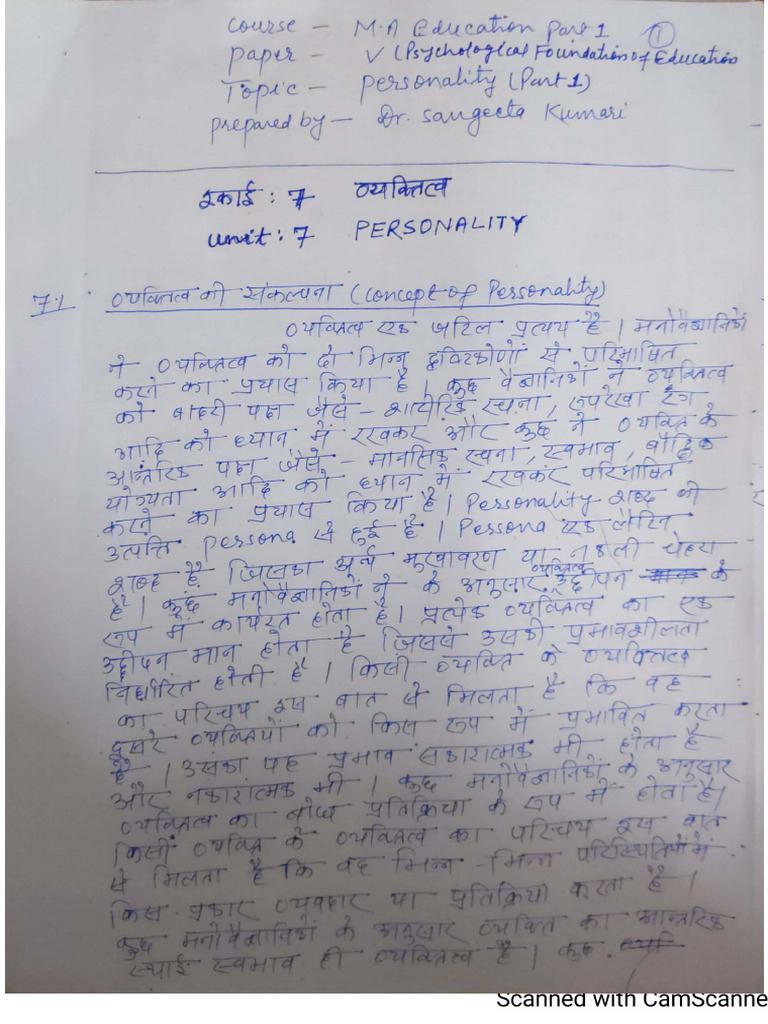 Course - M.A Education Part 1 ①
Paper - V (Psychological Foundation of Education
Topic - Personality (Part 1)
prepared by - Dr. Sangeeta Kumari
इकाई : 7 व्यक्तित्व
Unit : 7 PERSONALITY
7.1 व्यक्तित्व की संकल्पना (Concept of Personality)
व्यक्तित्व एक जटिल प्रत्यय है। मनोवैज्ञानिकों
ने व्यक्तित्व को दो भिन्न दृष्टिकोणों से परिभाषित
करने का प्रयास किया है। कुछ वैज्ञानिकों ने व्यक्तित्व
को बाहरी पक्ष जैसे - शारीरिक रचना, रूपरेखा रंग
आदि को ध्यान में रखकर और कुछ ने व्यक्ति के
आन्तरिक पक्ष जैसे - मानसिक रचना, स्वभाव, बौद्धिक
योग्यता आदि को ध्यान में रखकर परिभाषित
करने का प्रयास किया है। Personality शब्द की
उत्पत्ति Persona से हुई है। Persona एक लैटिन
शब्द है, जिसका अर्थ मुखावरण या नकली चेहरा
है। कुछ मनोवैज्ञानिकों ने के अनुसार व्यक्तित्व उद्दीपन के
रूप में कार्यरत होता है। प्रत्येक व्यक्तित्व का एक
उद्दीपन मान होता है जिससे उसकी प्रभावशीलता
निर्धारित होती है। किसी व्यक्ति के व्यक्तित्व
का परिचय इस बात से मिलता है कि वह
दूसरे व्यक्तियों को किस रूप में प्रभावित करता
है। उसका यह प्रभाव सकारात्मक भी होता है
और नकारात्मक भी। कुछ मनोवैज्ञानिकों के अनुसार
व्यक्तित्व का बोध प्रतिक्रिया के रूप में होता है।
किसी व्यक्ति के व्यक्तित्व का परिचय इस बात
से मिलता है कि वह भिन्न-भिन्न परिस्थितियों में
किस प्रकार व्यवहार या प्रतिक्रिया करता है।
कुछ मनोवैज्ञानिकों के अनुसार व्यक्ति का आन्तरिक
स्थाई स्वभाव ही व्यक्तित्व है। कुछ
Scanned with CamScanne